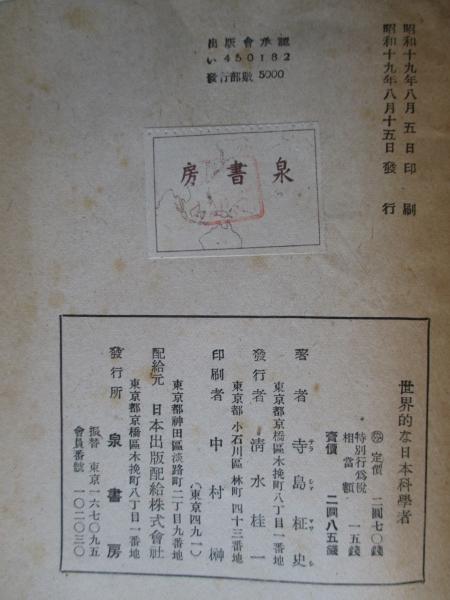 昭和十九年八月五日印刷
昭和十九年八月十五日發行
出版會承認
い450182
發行部數 5000
泉書房
世界的な日本科學者
定價 二圓七〇錢
特別行爲稅相當額 一五錢
賣價 二圓八五錢
著者 寺島柾史
テラ シマ マサ シ
東京都京橋區木挽町八丁目一番地
發行者 淸水桂一
東京都小石川區林町四十三番地
印刷者 中村榊
(東京四九一)
東京都神田區淡路町二丁目九番地
配給元 日本出版配給株式會社
東京都京橋區木挽町八丁目一番地
發行所 泉書房
振替 東京一六七〇九五
會員番號 一〇二〇三〇